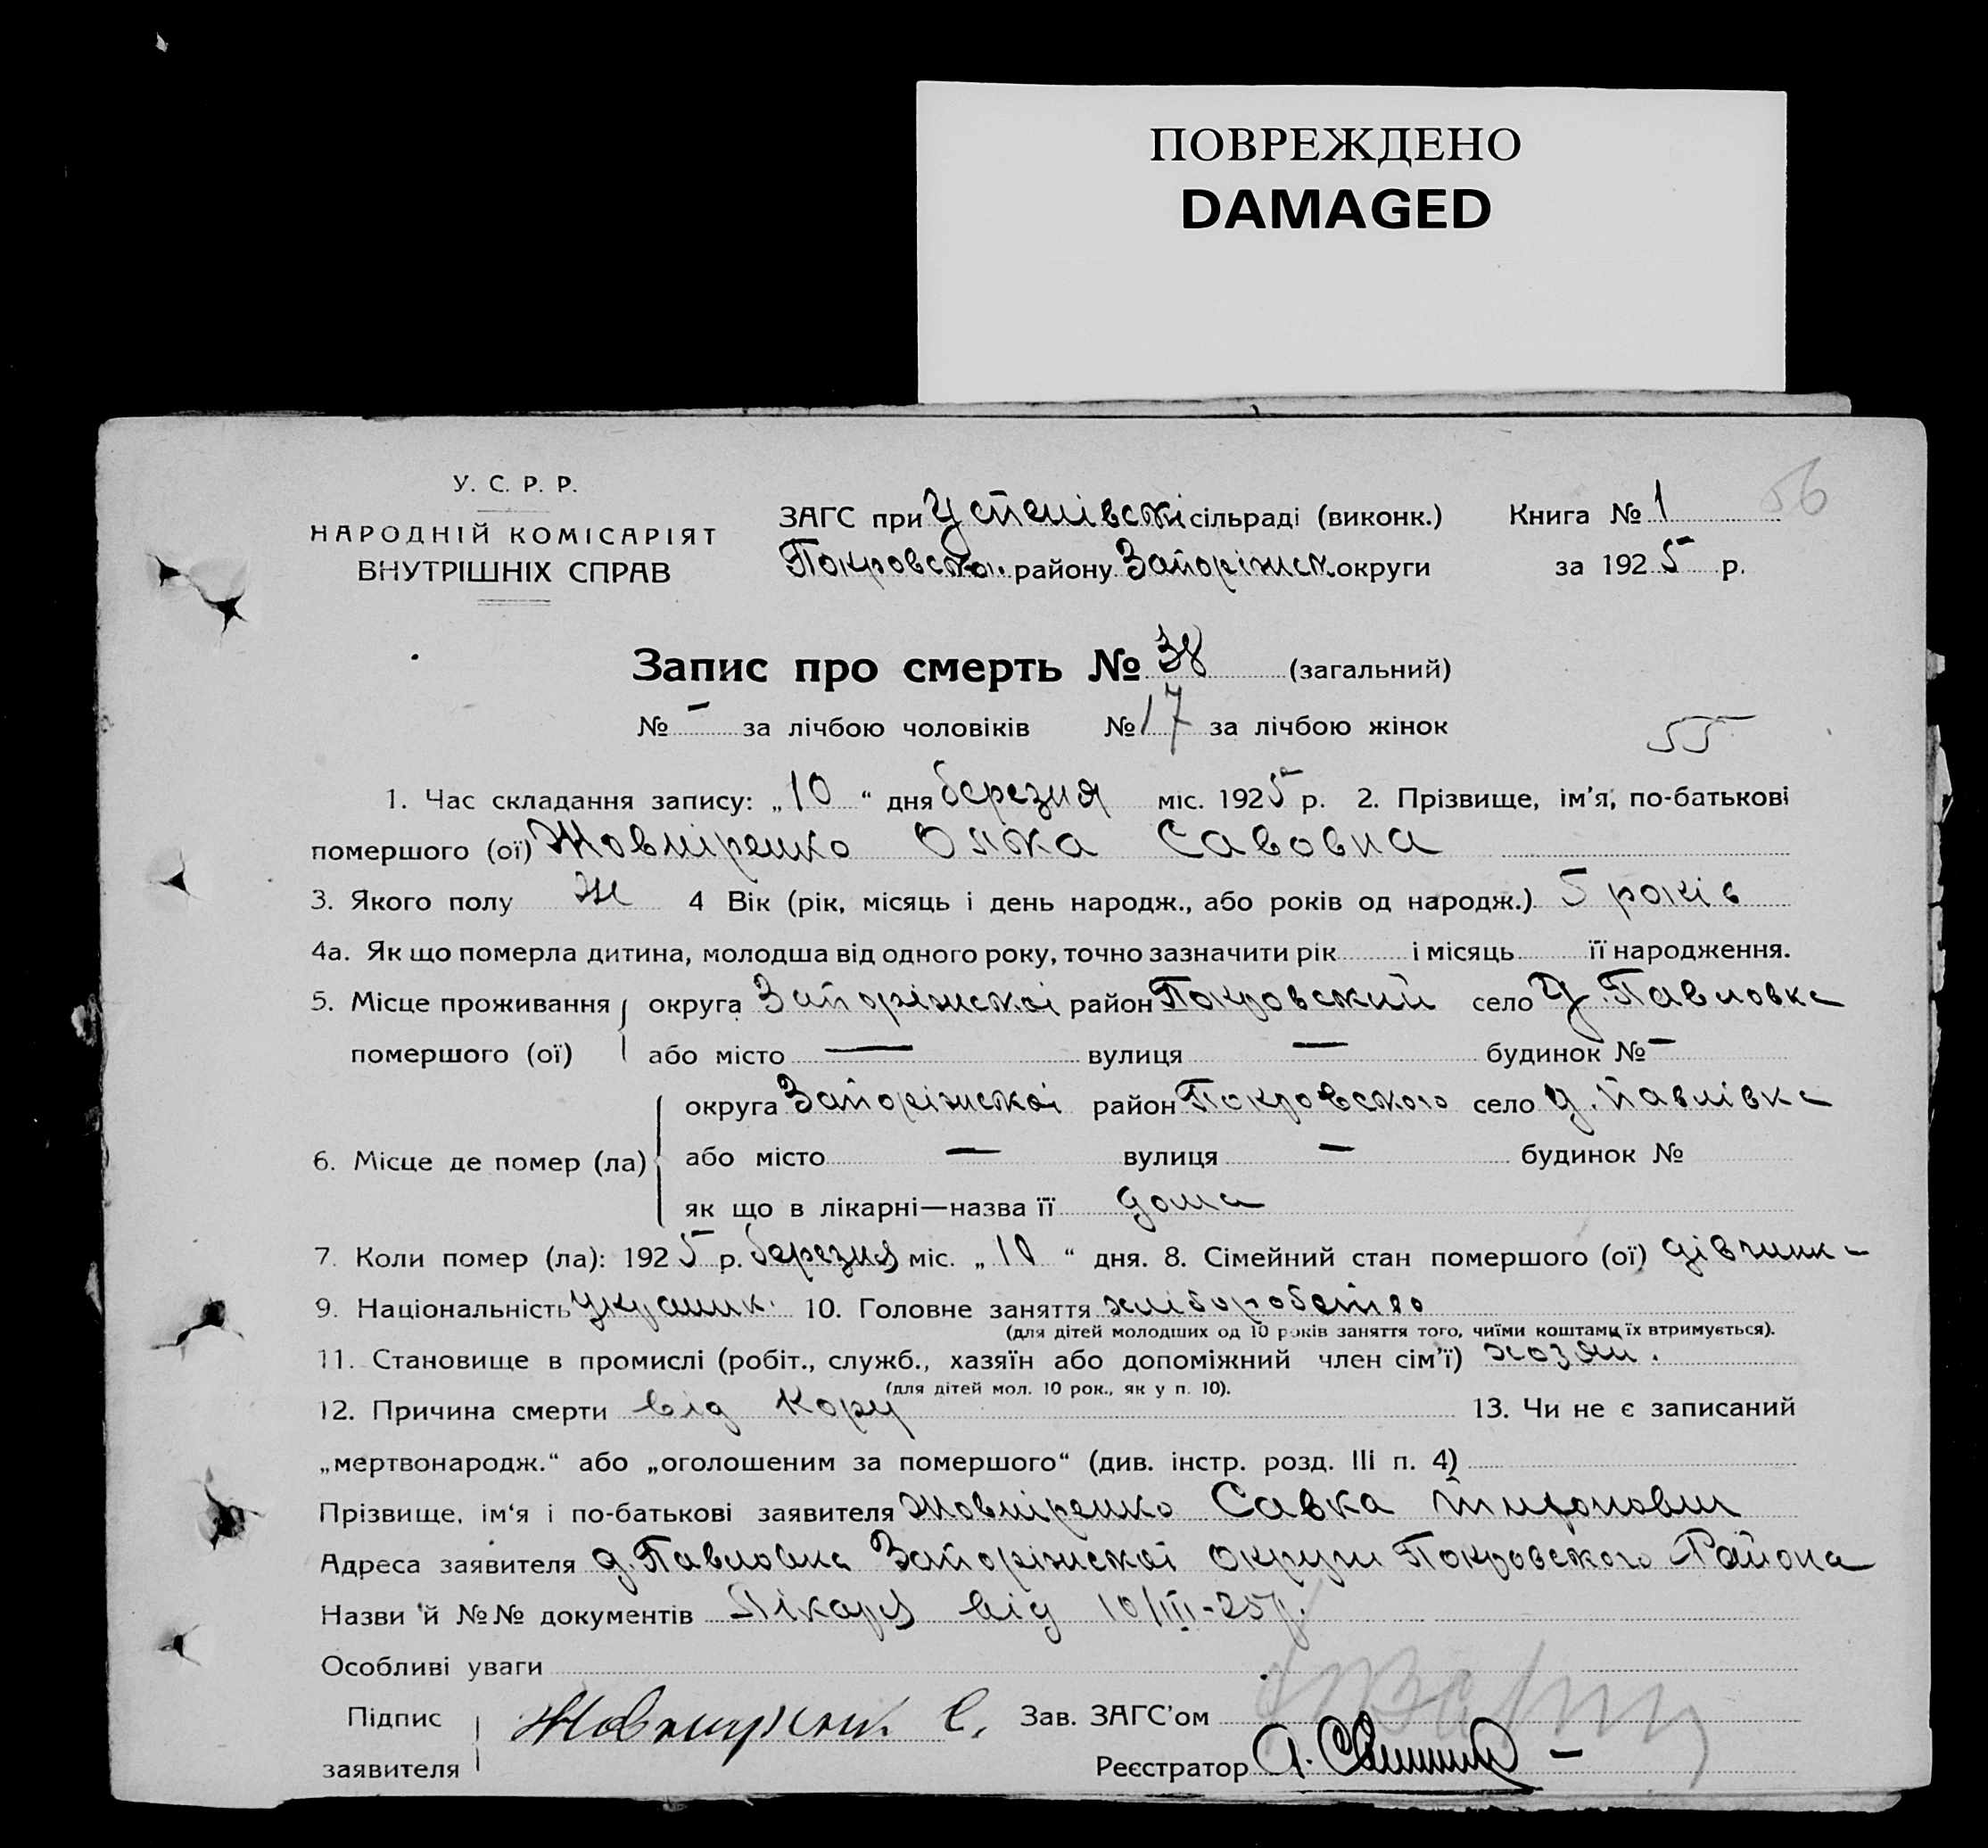 ПОВРЕЖДЕНО
DAMAGED
56
У. С. Р. Р.
НАРОДНІЙ КОМІСАРІЯТ
ВНУТРІШНІХ СПРАВ
ЗАГС при Успенівскі сільраді (виконк.) Книга № 1
Покровско. району Запоріжск округи за 1925 р.
Запис про смерть № 38 (загальний)
№ – за лічбою чоловіків № 17 за лічбою жінок
55
1. Час складання запису: „10“ дня березня міс. 1925 р. 2. Прізвище, ім'я, по-батькові
помершого (ої) Жовніренко Олжа Савовна
3. Якого полу Ж 4 Вік (рік, місяць і день народж., або років од народж.) 5 років
4а. Як що померла дитина, молодша від одного року, точно зазначити рік і місяць її народження.
5. Місце проживання округа Запоріжскоі район Покровский село д. Павловка
помершого (ої) або місто — вулиця — будинок № –
округа Запоріжскоі район Покровского село д. Павлівка
6. Місце де помер (ла) або місто — вулиця — будинок №
як що в лікарні—назва її дома
7. Коли помер (ла): 1925 р. березня міс. „10“ дня. 8. Сімейний стан помершого (ої) дівчинка
9. Національність украинк. 10. Головне заняття хліборобство
(для дітей молодших од 10 років заняття того, чиїми коштами їх втримується).
11. Становище в промислі (робіт., служб., хазяїн або допоміжний член сім'ї) хозяи.
(для дітей мол. 10 рок., як у п. 10).
12. Причина смерти від кору 13. Чи не є записаний
„мертвонародж.“ або „оголошеним за помершого“ (див. інстр. розд. III п. 4)
Прізвище, ім'я і по-батькові заявителя Жовніренко Савка
Адреса заявителя д. Павловка Запоріжскоі округи Покровского Района
Назви й №№ документів Лікаря від 10/III-25р.
Особливі уваги
Підпис Зав. ЗАГС'ом
заявителя Реєстратор